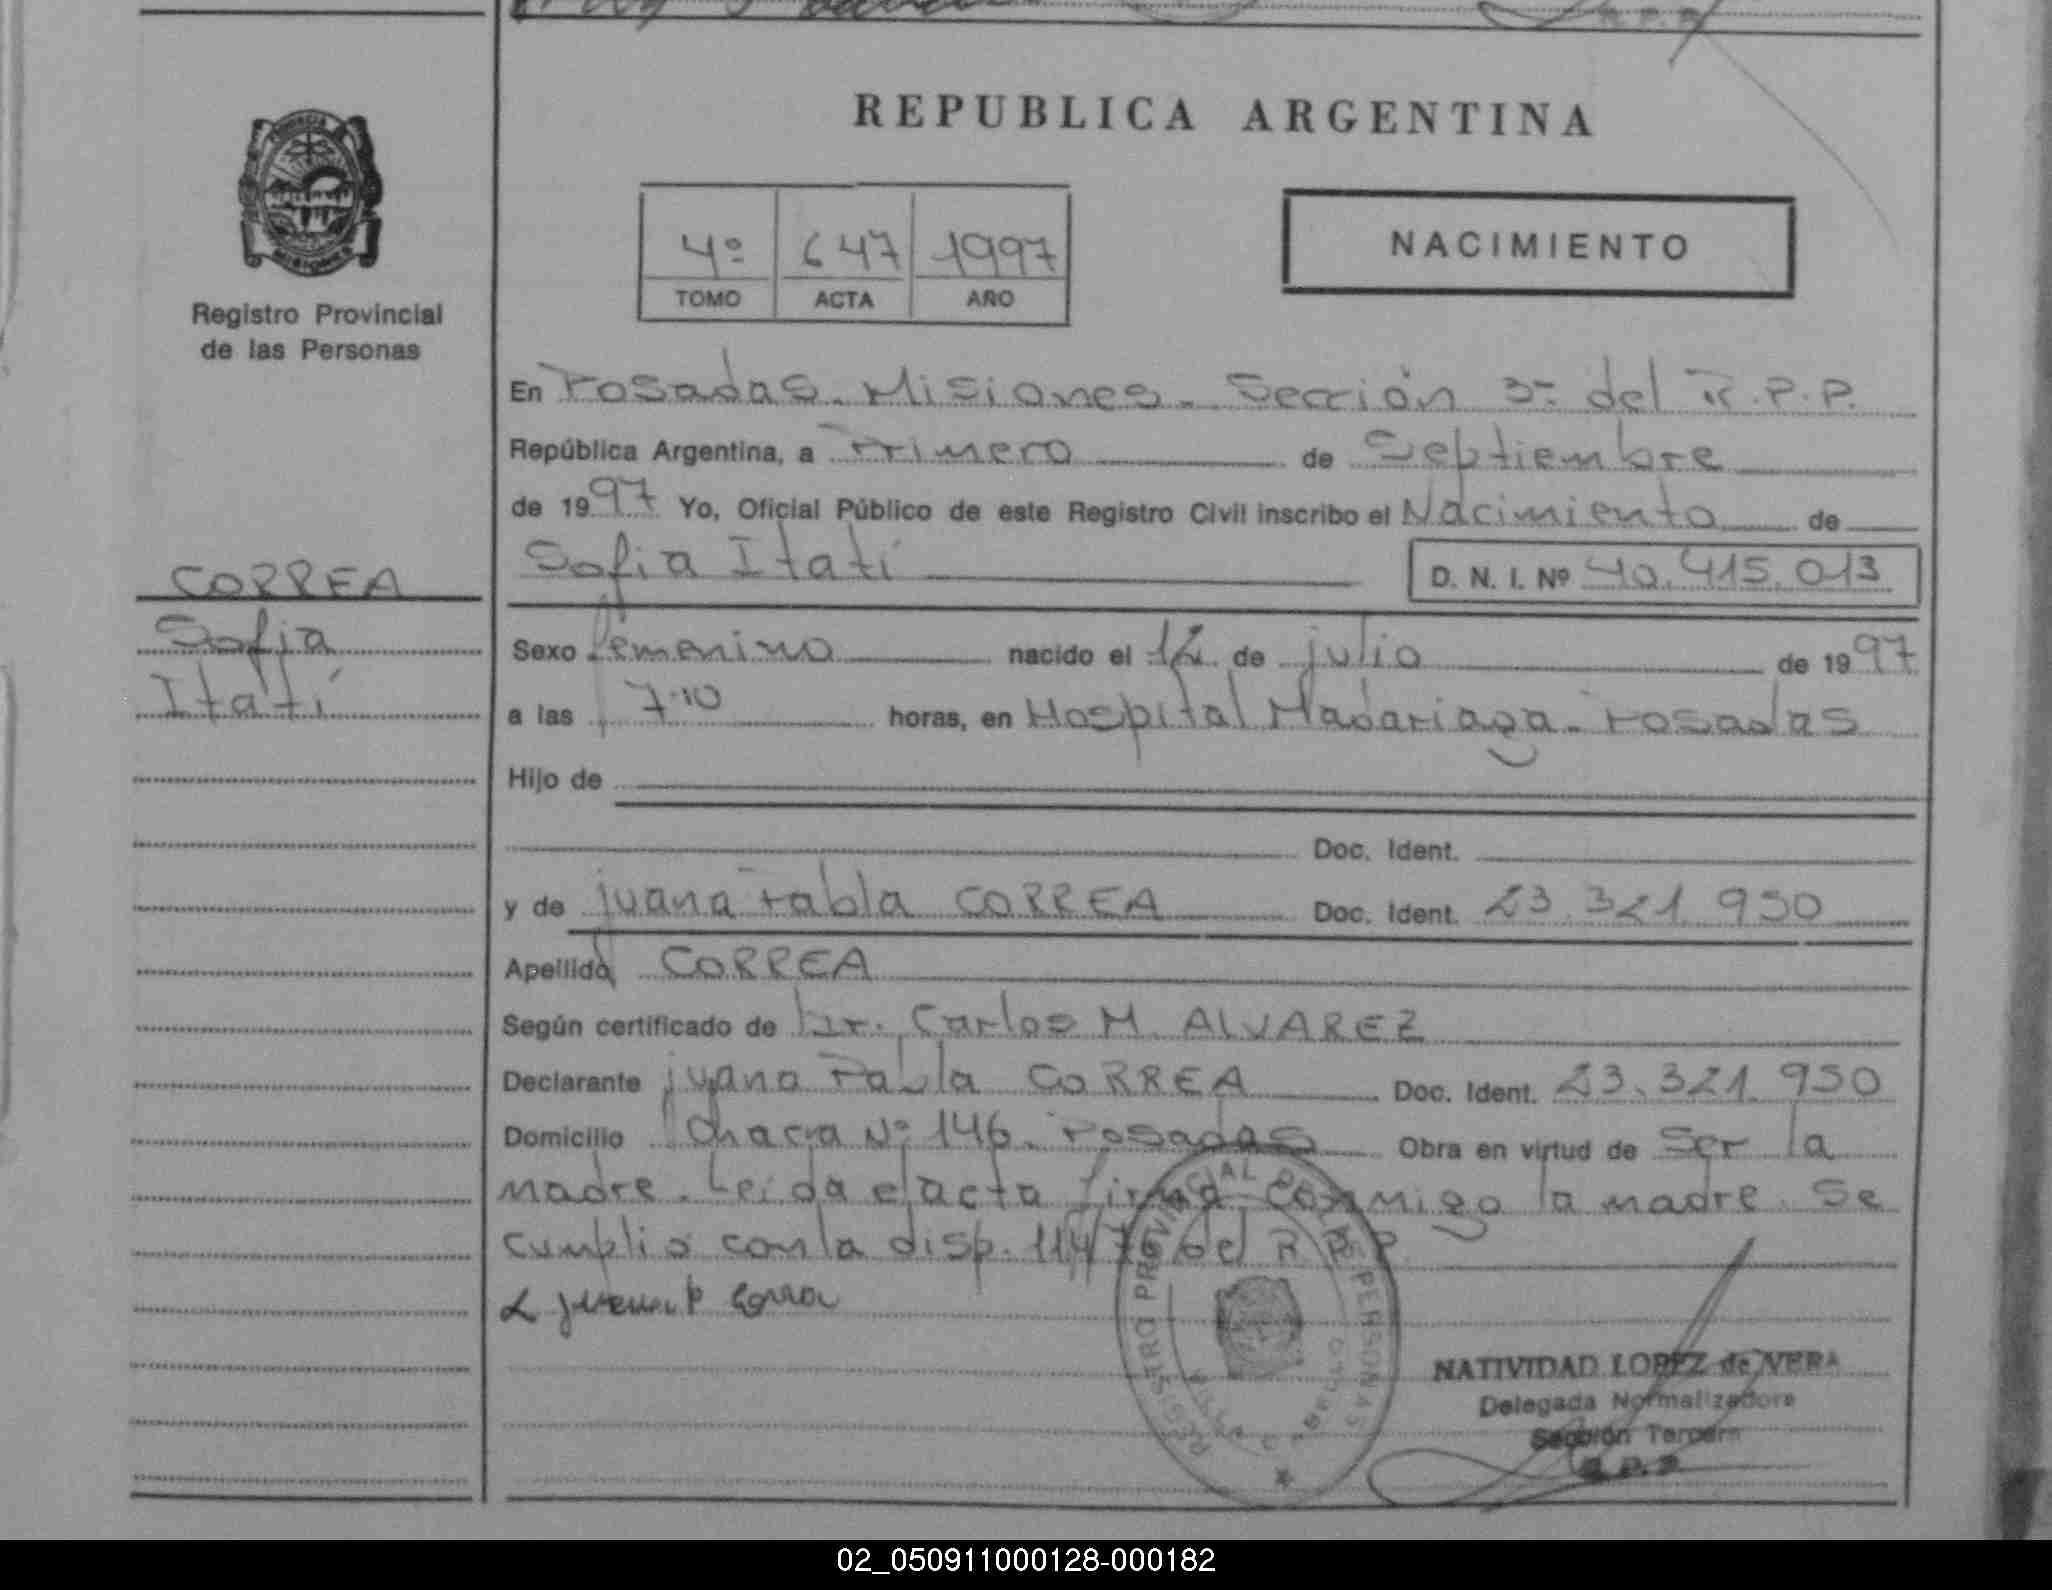 REPUBLICA ARGENTINA
PROVINCIA
MISIONES
Registro Provincial
de las Personas
4º 647 1997
TOMO ACTA AÑO
NACIMIENTO
En Posadas - Misiones - Sección 3º del R.P.P.
República Argentina, a Primero de Septiembre
de 1997 Yo, Oficial Público de este Registro Civil inscribo el Nacimiento de
Sofia Itatí D. N. I. Nº 40.415.013
CORREA
Sofia
Itatí
Sexo femenino nacido el 12 de julio de 1997
a las 7.10 horas, en Hospital Madariaga - Posadas
Hijo de
Doc. Ident.
y de juana Pabla CORREA Doc. Ident. 23.321.950
Apellido CORREA
Según certificado de Dr. Carlos M. ALVAREZ
Declarante juana Pabla CORREA Doc. Ident. 23.321.950
Domicilio Chacra Nº 146. Posadas Obra en virtud de Ser la
madre. Leida el acta firma conmigo la madre. Se
cumplio con la disp. 114/76 del R.P.P.
juana P Correa
REGISTRO PROVINCIAL DE LAS PERSONAS
NATIVIDAD LOPEZ de VERA
Delegada Normalizadora
Sección Tercera
R.P.P.
02_050911000128-000182